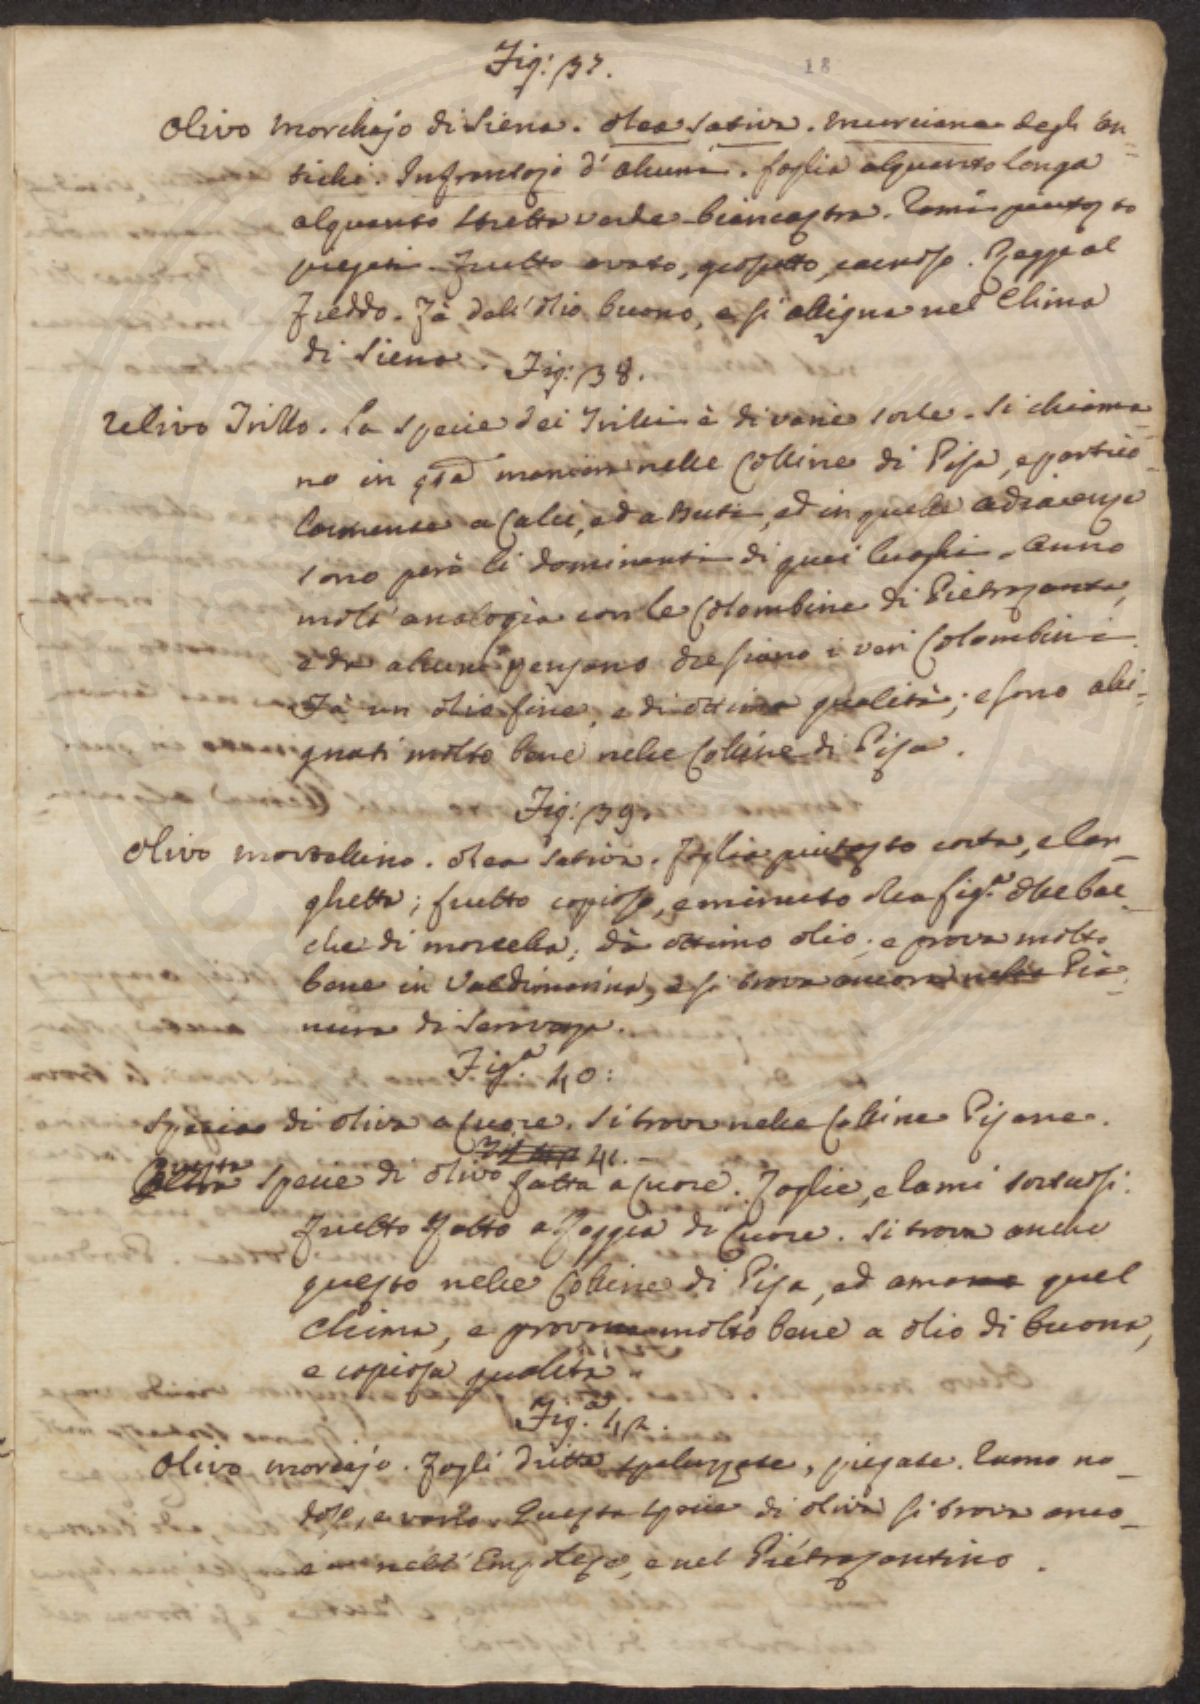 Fig: 37.
18
Olivo Morchajo di Siena. Olea Sativa. Murciana degli An-
tichi. Infrantojo d'alcuni. foglia alquanto longa
alquanto stretta verde biancastra. Rami piutosto
piegati. Frutto ovato, grossetto, carnoso. Regge al
freddo. Fà dell'olio buono, e si alligna nel Clima
di Siena.
Fig: 38.
Ulivo Trillo. La specie dei Trilli è di varie sorte. Si chiama-
no in qta maniera nelle Colline di Pisa, e partico-
larmente a Calci, ed a Buti, ed in quelle adiacenze
sono però li dominanti di quei luoghi. Anno
molt'analogia con le Colombine di Pietrasanta,
e da alcuni pensano che siano i veri Colombini.
Fà un olio fine, e di ottima qualità; e sono alli-
gnati molto bene nelle Colline di Pisa.
Fig: 39.
Olivo mortellino. Olea Sativa. Foglia piutosto corta, e lar-
ghetta; frutto copioso, e minuto alla fig.a delle bac-
che di mortella; dà ottimo olio; e prova molto
bene in Valdinarina, e si trova ancora nella Pia-
nura di Seraveza.
Fig.a 40:
Specie di oliva a Cuore. Si trova nelle Colline Pisane.
41.
Questa specie di olivo fatta a Cuore. Foglie, e Rami tortuosi.
Frutto fatto a foggia di Cuore. Si trova anche
questo nelle Colline di Pisa, ed ama quel
Clima, e prova molto bene a olio di buona,
e copiosa qualità.
Fig.a 42.
Olivo morcajo. Fogli dritte, piegate. Ramo no-
doso, e vario. Questa specie di oliva si trova anco-
e nell'Empolese, e nel Pietrasantino.